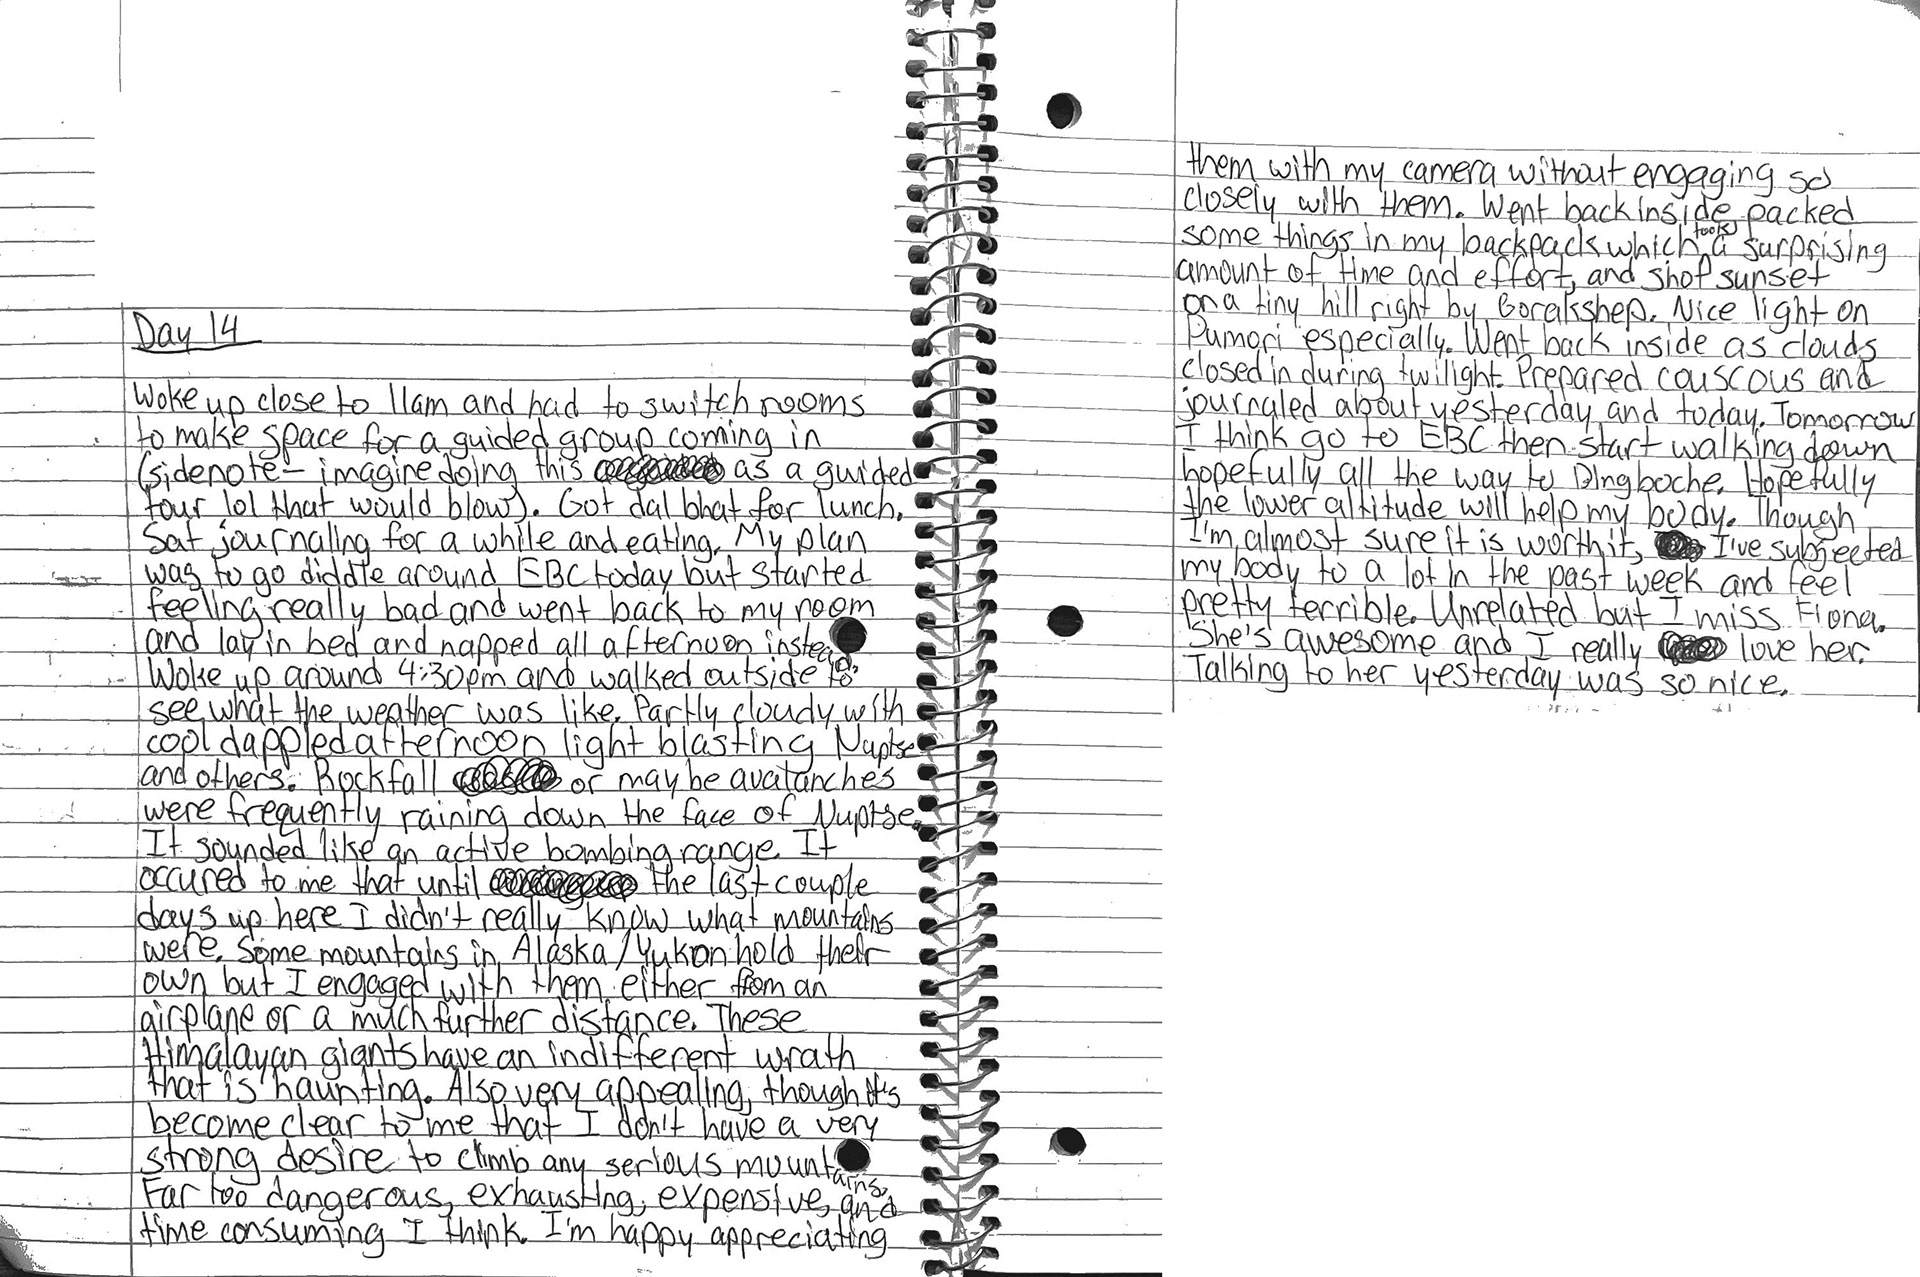 Day 14
Woke up close to 11am and had to switch rooms
to make space for a guided group coming in
(sidenote - imagine doing this as a guided
tour lol that would blow). Got dal bhat for lunch.
Sat journaling for a while and eating. My plan
was to go diddle around EBC today but started
feeling really bad and went back to my room
and lay in bed and napped all afternoon instead.
Woke up around 4:30pm and walked outside to
see what the weather was like. Partly cloudy with
cool dappled afternoon light blasting Nuptse
and others. Rockfall or maybe avalanches
were frequently raining down the face of Nuptse.
It sounded like an active bombing range. It
occured to me that until the last couple
days up here I didn't really know what mountains
were. Some mountains in Alaska/Yukon hold their
own but I engaged with them either from an
airplane or a much further distance. These
Himalayan giants have an indifferent wrath
that is haunting. Also very appealing, though it's
become clear to me that I don't have a very
strong desire to climb any serious mountains.
Far too dangerous, exhausting, expensive, and
time consuming I think. I'm happy appreciating
them with my camera without engaging so
closely with them. Went back inside, packed
some things in my backpack which took a surprising
amount of time and effort, and shot sunset
on a tiny hill right by Gorakshep. Nice light on
Pumori especially. Went back inside as clouds
closed in during twilight. Prepared couscous and
journaled about yesterday and today. Tomorrow
I think go to EBC then start walking down
hopefully all the way to Dingboche. Hopefully
the lower altitude will help my body. Though
I'm almost sure it is worth it, I've subjected
my body to a lot in the past week and feel
pretty terrible. Unrelated but I miss Fiona.
She's awesome and I really love her.
Talking to her yesterday was so nice.